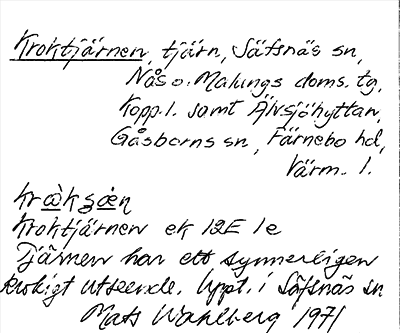 Kroktjärnen, tjärn, Säfsnäs sn,
Nås o. Malungs doms. tg,
Kopp. l. samt Älvsjöhyttan,
Gåsborns sn, Färnebo hd,
Värm. l.
Kroktjärnen ek 12E 1e
Tjärnen har ett synnerligen
krokigt utseende. Uppt. i Säfsnäs sn
Mats Wahlberg 1971